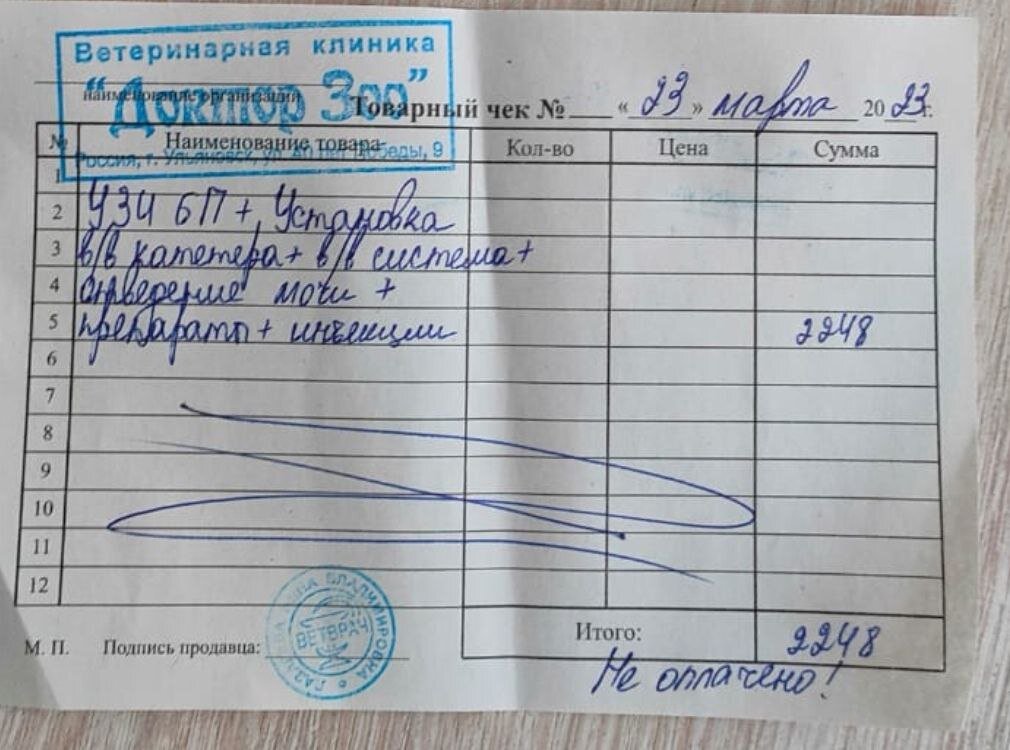 Ветеринарная клиника
"Доктор Зоо"
наименование организации
Россия, г. Ульяновск, ул. 40 лет Победы, 9
Товарный чек № « 23 » марта 2023г.
№ Наименование товара Кол-во Цена Сумма
1
2 УЗИ БП + Установка
3 в/в катетера + в/в система +
4 отведение мочи +
5 препараты + инъекции 2248
6
7
8
9
10
11
12
Итого: 2248
М. П. Подпись продавца:
ВЛАДИМИРОВНА
ВЕТВРАЧ
Не оплачено!